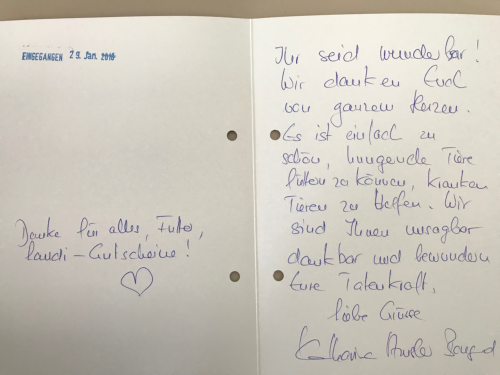 EINGEGANGEN 29. Jan. 2018
Danke für alles, Futter,
Landi-Gutscheine!
Ihr seid wunderbar!
Wir danken Euch
von ganzem Herzen.
Es ist einfach zu
schön, hungernde Tiere
füttern zu können, kranken
Tieren zu helfen. Wir
sind Ihnen unsagbar
dankbar und bewundern
Eure Tatenkraft,
liebe Grüsse